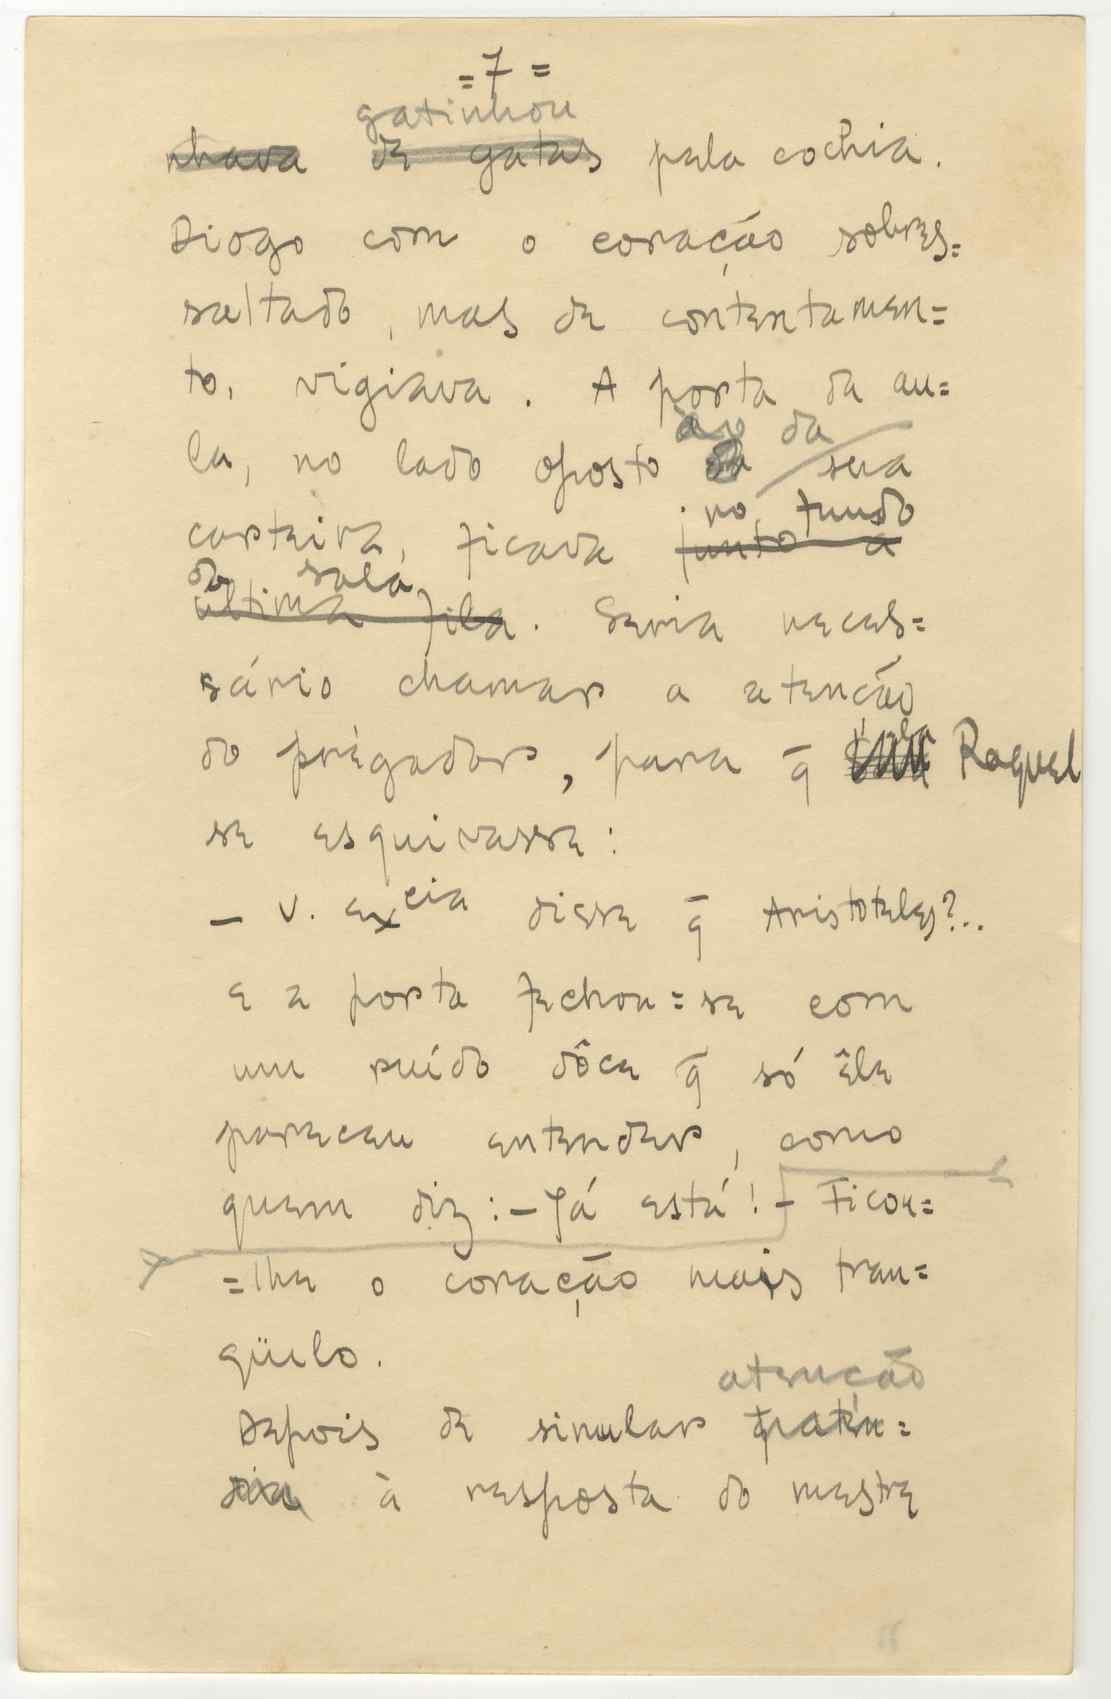 =7=
gatinhou
nhava de gatas pela cochia.
Diogo com o coração sobres=
saltado, mas de contentamen=
to, vigiava. A porta da au=
ao da
la, no lado oposto da sua
no fundo
carteira, ficava junto a
da sala
última fila. Seria neces=
sário chamar a atenção
do prègador, para q̄ Raquel
se esquivasse:
– V. excia disse q̄ Aristoteles?..
E a porta fechou=se com
um ruído dôce q̄ só êle
pareceu entender, como
quem diz: – Já está! – Ficou=
=lhe o coração mais tran=
qüilo.
atenção
Depois de simular
à resposta do mestre